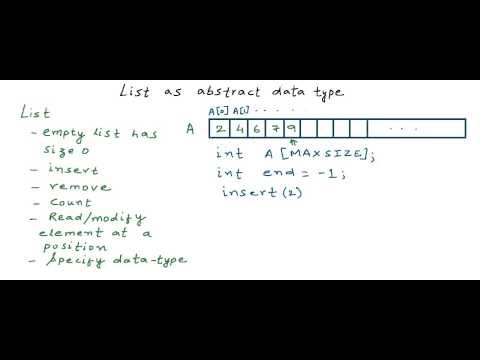 List as abstract data type
List
- empty list has
size 0
- insert
- remove
- count
- Read/modify
element at a
position
- Specify data-type
A[0] A[1] . . . .
A 2 4 6 7 9 . . .
int A[MAXSIZE];
int end = -1;
insert(2)